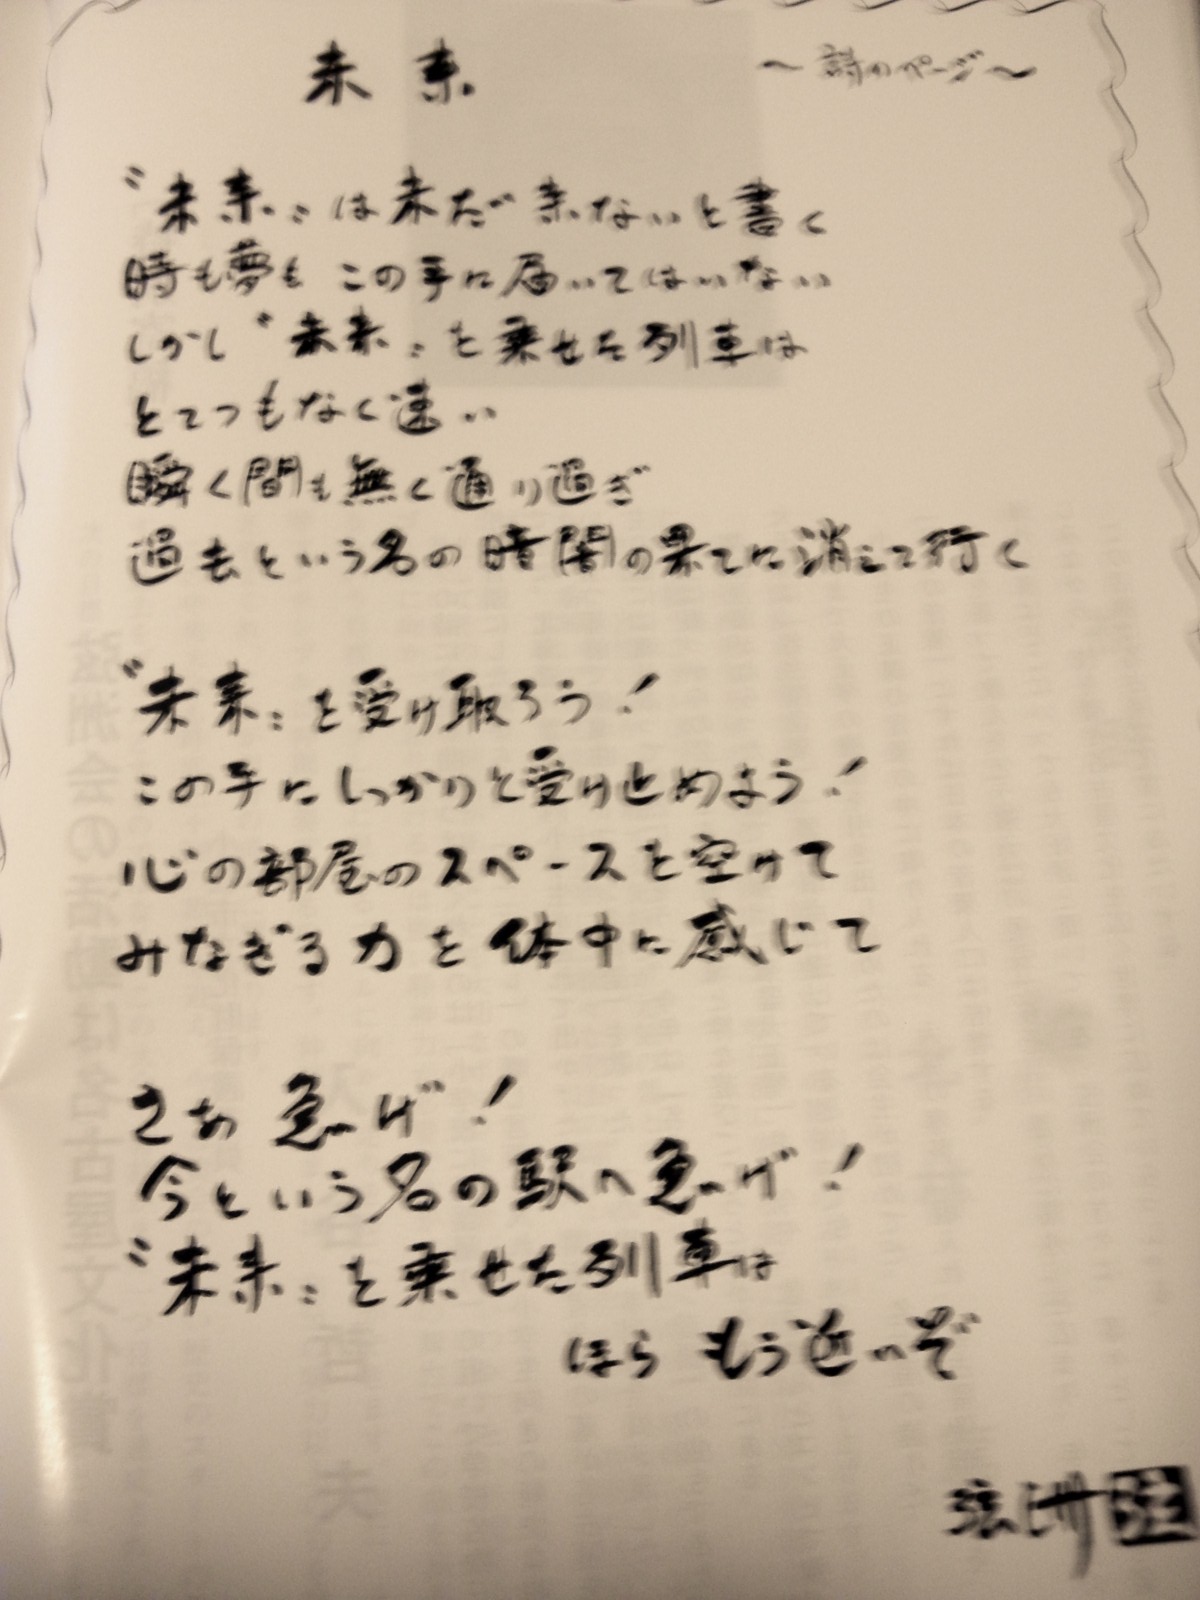 未来
～詩のページ～
〝未来〟は未だ来ないと書く
時も夢も この手に届いてはいない
しかし〝未来〟を乗せた列車は
とてつもなく速い
瞬く間も無く通り過ぎ
過去という名の暗闇の果てに消えて行く
〝未来〟を受け取ろう！
この手にしっかりと受け止めよう！
心の部屋のスペースを空けて
みなぎる力を体中に感じて
さあ 急げ！
今という名の駅へ急げ！
〝未来〟を乗せた列車は
ほら もう近いぞ
弦洲